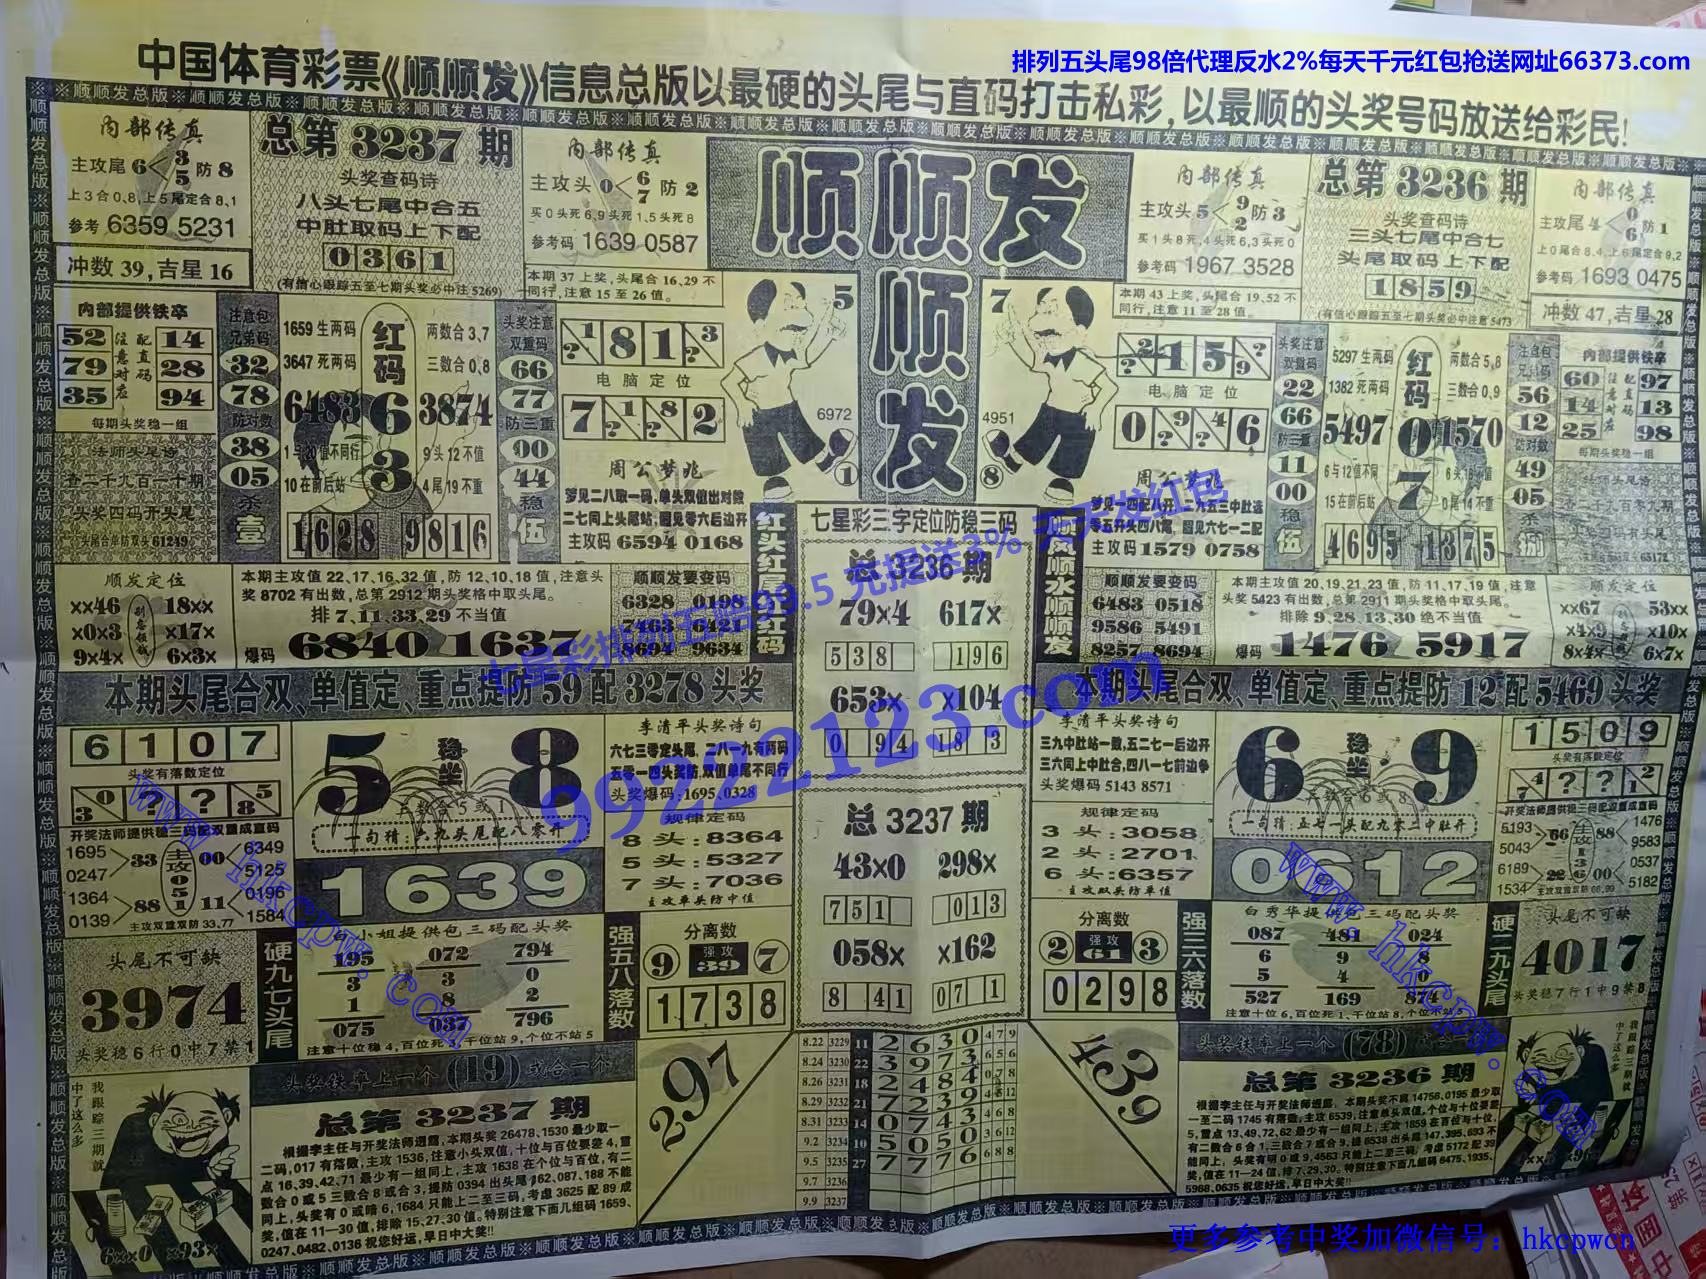 排列五头尾98倍代理反水2%每天千元红包抢送网址66373.com
中国体育彩票《顺顺发》信息总版以最硬的头尾与直码打击私彩,以最顺的头奖号码放送给彩民!
内部传真
主攻尾 6 3 5 防 8
上3合0,8,上5尾定合8,1
参考 6359 5231
冲数 39,吉星 16
总第 3237 期
头奖查码诗
八头七尾中合五
中肚取码上下配
0 3 6 1
(有信心跟踪五至七期头奖必中注 5269)
内部传真
主攻头 0 6 7 防 2
买0头死6,9头死1,5头死8
参考码 1639 0587
本期 37 上奖,头尾合 16,29 不
同行,注意 15 至 26 值。
顺顺发
顺
发
内部传真
主攻头 5 9 2 防 3
买1头8死,4头死6,3头死0
参考码 1967 3528
本期 43 上奖,头尾合 19,52 不
同行,注意 11 至 28 值。
总第 3236 期
头奖查码诗
三头七尾中合七
头尾取码上下配
1 8 5 9
(有信心跟踪五至七期头奖必中注 5473
内部传真
主攻尾 4 0 6 防 1
上0尾合8,4,上6尾定合9,2
参考码 1693 0475
冲数 47,吉星 28
内部提供铁卒
52 注 配 14
79 意 直 28
35 对应 码 94
每期头奖稳一组
法师头尾诗
查二千九百一十期
头奖四码开头尾
头尾合单防双头 61249
注意包
兄弟码
32
78
防对数
38
05
杀
壹
1659 生两码
3647 死两码
6483
1与20值不同行
10在前后站
红码
6
3
两数合 3,7
三数合 0,8
3874
9头12不值
4尾19不重
1628 9816
头奖注意
双重码
66
77
防三重
00
44
稳
伍
? 8 1 ? 3
电脑定位
7 1 ? 8 ? 2
周公梦兆
梦见二八取一码,单头双值出对数
二七同上头尾站,圆见零六后边开
主攻码 6594 0168
5
6972
1
7
4951
8
? 2 1 5 9 ?
电脑定位
0 9 ? 4 ? 6
周公梦兆
梦见一四配八开,二九五三中肚选
零五开头四八尾,圆见六七一二配
主攻码 1579 0758
头奖注意
双重码
22
66
防三重
11
00
稳
伍
5297 生两码
1382 死两码
5497
6与12值不同
15在前后站
红码
0
7
两数合 5,8
三数合 0,9
1570
0尾14不重
4695 1375
注意包
兄弟码
56
12
防对数
49
05
杀
捌
内部提供铁卒
60 97
14 13
25 98
每期头奖稳一组
顺发定位
xx46 18xx
x0x3 x17x
9x4x 6x3x
本期主攻值 22,17,16,32 值,防 12,10,18 值,注意头
奖 8702 有出数,总第 2912 期头奖格中取头尾。
排 7,11,33,29 不当值
爆码 6840 1637
顺顺发要变码
6328 0198
7463 6421
8694 9634
红头红尾红红码
七星彩三字定位防稳三码
总 3236 期
79x4 617x
5 3 8 1 9 6
653x x104
0 9 4 1 8 3
总 3237 期
43x0 298x
7 5 1 0 1 3
058x x162
8 4 1 0 7 1
顺风顺水顺顺发
顺顺发要变码
6483 0518
9586 5491
8257 8694
本期主攻值 20,19,21,23 值,防 11,17,19 值,注意
头奖 5423 有出数,总第 2911 期头奖格中取头尾。
排除 9,28,13,30 绝不当值
爆码 1476 5917
顺发定位
xx67 53xx
x4x9 x10x
8x4x 6x7x
本期头尾合双、单值定、重点提防 59 配 3278 头奖
本期头尾合双、单值定、重点提防 12 配 5469 头奖
6 1 0 7
头奖有落数定位
3 0 ? ? 8 5
开奖法师提供稳三码配双重成直码
1695 33 主攻 00 6349
0247 0 5125
1364 88 5 11 0196
0139 1 1584
主攻双重双防 33,77
5 稳坐 8
一句猜:六九头尾配八零开
1639
李清平头奖诗句
六七三零定头尾,二八一九有两码
五零一四头奖防,双值单尾不同行
头奖爆码:1695,0328
规律定码
8 头:8364
5 头:5327
7 头:7036
主攻单头防中值
李清平头奖诗句
三九中肚站一数,五二七一后边开
三六同上中肚合,四八一七前边争
头奖爆码 5143 8571
规律定码
3 头:3058
2 头:2701
6 头:6357
主攻双头防单值
6 稳坐 9
一句猜:五七一头配九零二中肚开
0612
1 5 0 9
头奖有落数定位
7 4 ? ? 1 2
开奖法师提供稳三码配双重成直码
5193 66 主攻 88 1476
5043 1 9583
6189 22 3 00 0537
1534 6 5182
主攻双重双防 66,99
头尾不可缺
3974
头奖稳6行0中7禁1
硬九七头尾
白小姐提供包三码配头奖
195 072 794
3 3 0
1 8 2
075 037 796
注意十位稳 4,百位死 7,千位站 9,个位不站 5
强五八落数
分离数
9 强攻 39 7
1 7 3 8
分离数
2 强攻 61 3
0 2 9 8
强三六落数
白秀华提供包三码配头奖
087 481 024
6 9 8
5 4 0
527 169 874
注意十位 6,百位死 1,千位站 8,个位不站
硬二九头尾
头尾不可缺
4017
头奖稳7行1中9禁8
我跟踪三期就
中了这么多
6xx0 x93x
头奖铁率上一个 (19) 或合一个
总第 3237 期
根据李主任与开奖法师透露,本期头奖 26478,1530 最少取一
二码,017 有落数,主攻 1536,注意小头双值,十位与百位要垒 4,重
点 16,39,42,71 最少有一组同上,主攻 1638 在个位与百位,有二
数合 0 或 5 三数合 8 或合 3,提防 0394 出头尾,162,087,188 不能
同上,头奖有 0 或暗 6,1684 只能上二至三码,考虑 3625 配 89 成
奖,值在 11—30 值,排除 15,27,30 值。特别注意下面几组码 1659,
0247,0482,0136 祝您好运,早日中大奖!!
297
8.22 3229 11 2 6 3 0 4 7 9
8.24 3230 22 3 9 7 3 6 5 6
8.26 3231 18 2 4 8 4 0 7 8
8.29 3232 21 7 2 3 9
8.31 3233 14 0 7 4 3 4 6 8
9.2 3234 10 5 0 5 0 3 6 12
9.5 3235 27 7 7 7 6 6 8 8
9.7 3236
9.9 3237
439
头奖铁率上一个 (78) 或合一个
总第 3236 期
我跟踪三期就
中了这么多
顺顺发总版※顺顺发总版※顺顺发总版※顺顺发总版
七星彩排列五赔99.5 充提送3% 天天发红包
99222123.com
www.hkcpw.com
www.hkcpw.com
更多参考中奖加微信号: hkcpwcn